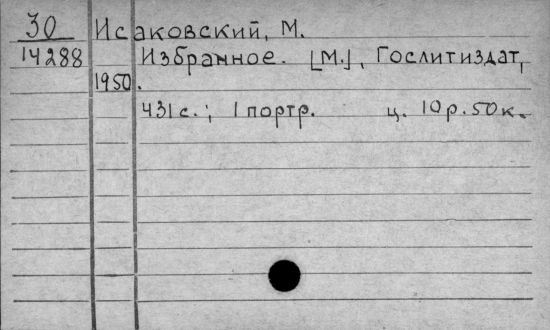 30 Исаковский, М.
14288 Избранное. [М.], Гослитиздат,
1950.
431 с.; 1 портр. ц. 10 р. 50 к.